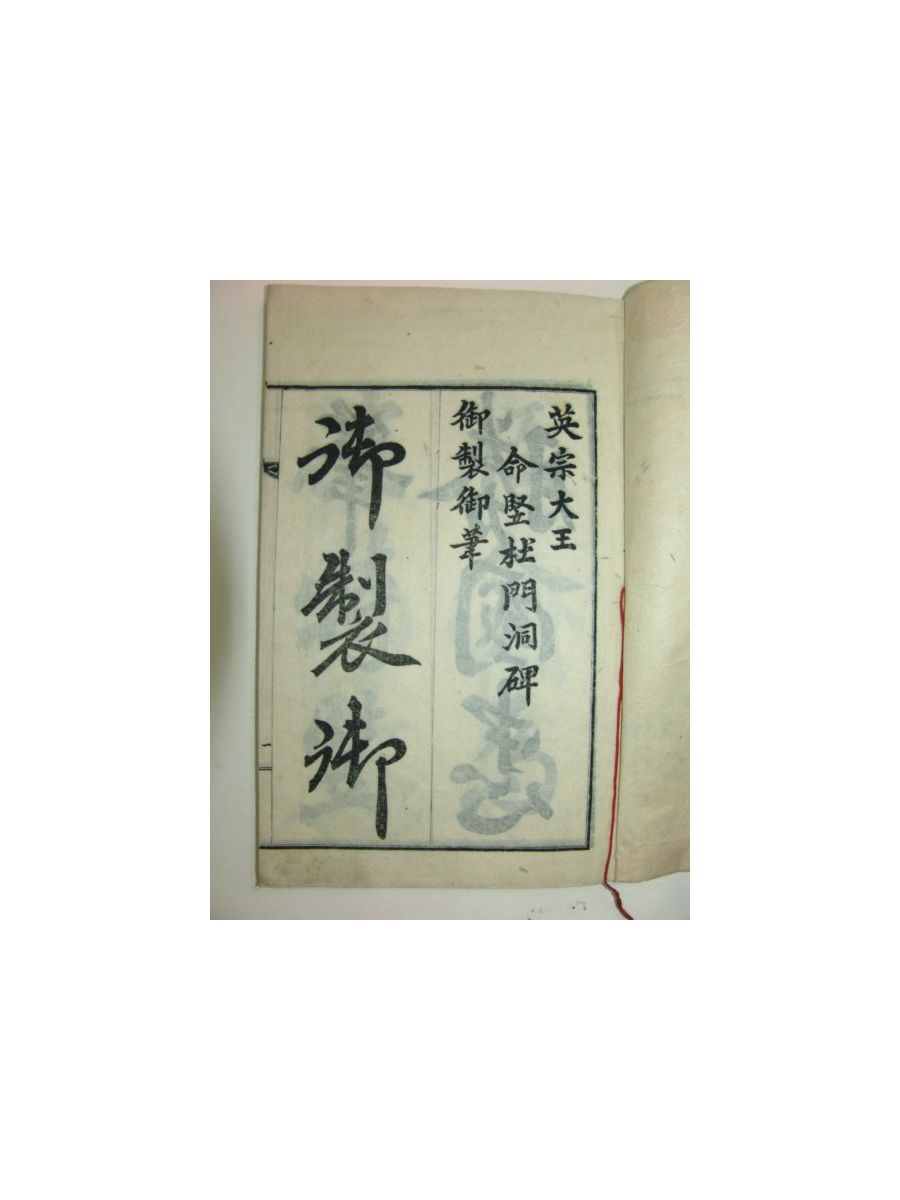 英宗大王
命竪杜門洞碑
御製御筆
御製御
一